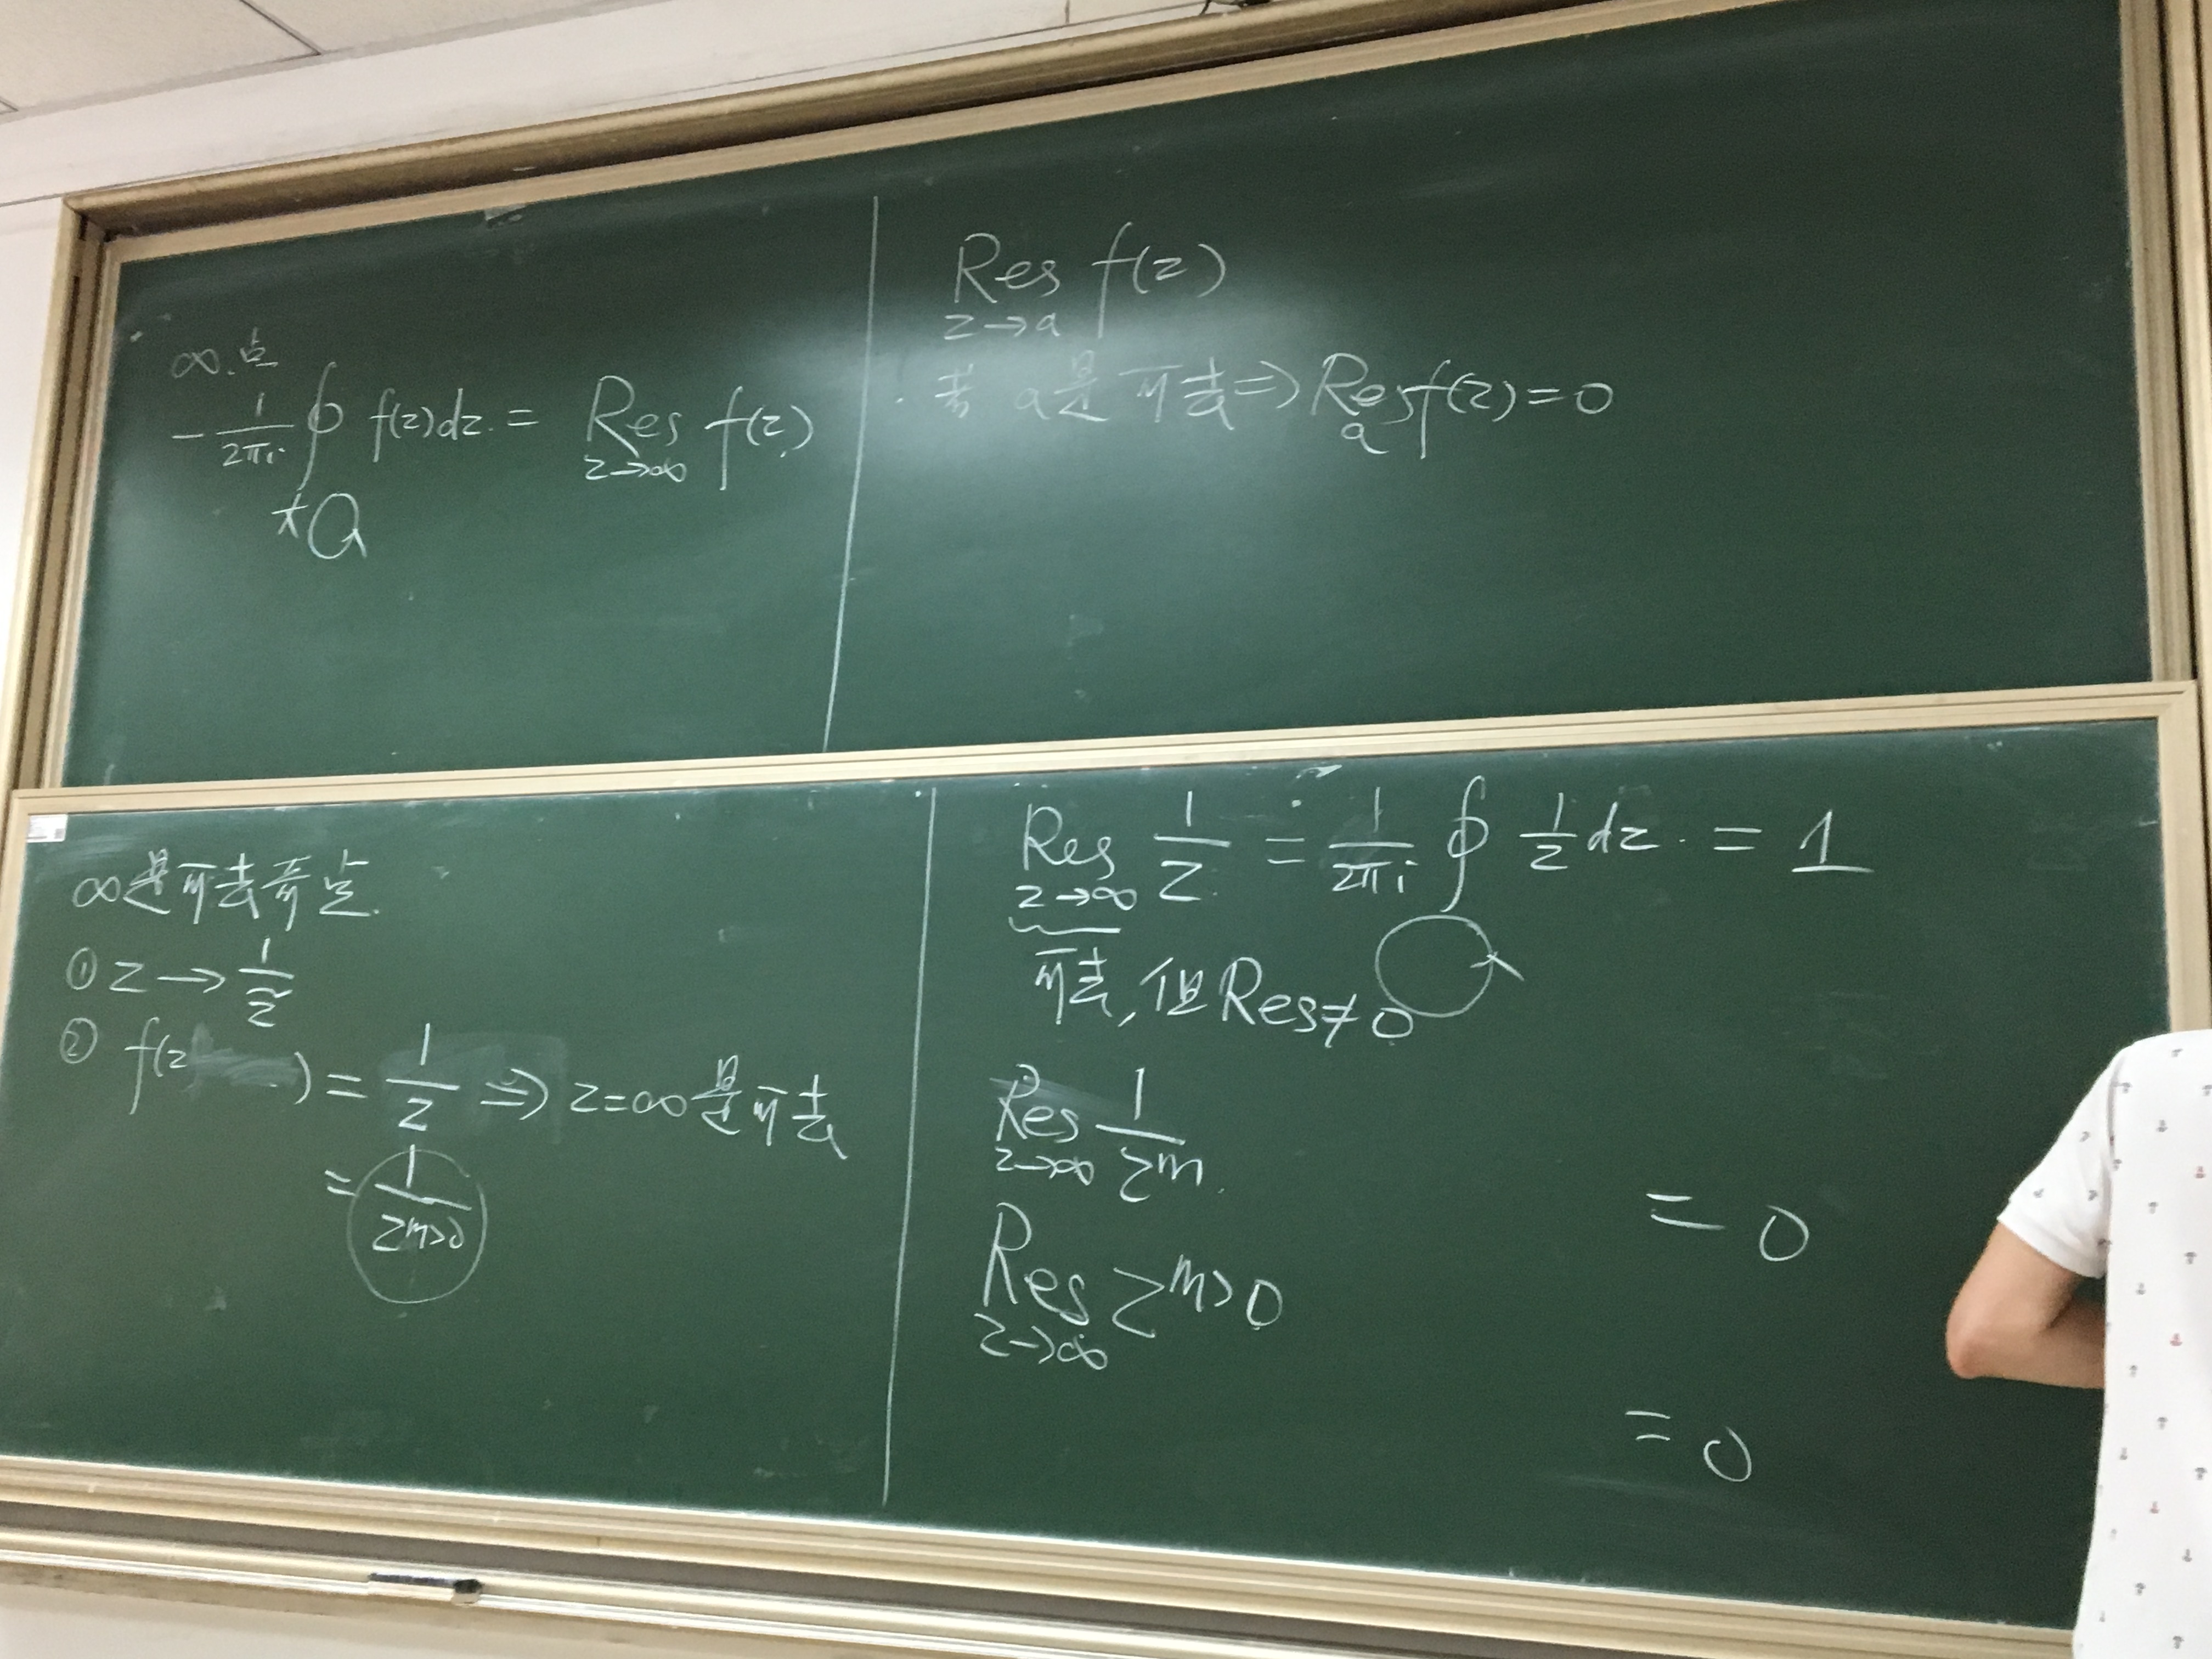 ∞点
-1/2πi ∮ f(z)dz = Res z→∞ f(z)
大
Res z→a f(z)
· 若 a是可去 ⇒ Res a f(z)=0
∞是可去奇点.
① z → 1/z
② f(z ) = 1/z ⇒ z=∞是可去
= 1/z^m>0
Res z→∞ 1/z = 1/2πi ∮ 1/z dz. = 1
可去, 但Res≠0
Res z→∞ 1/z^m.
= 0
Res z→∞ z^m>0
= 0